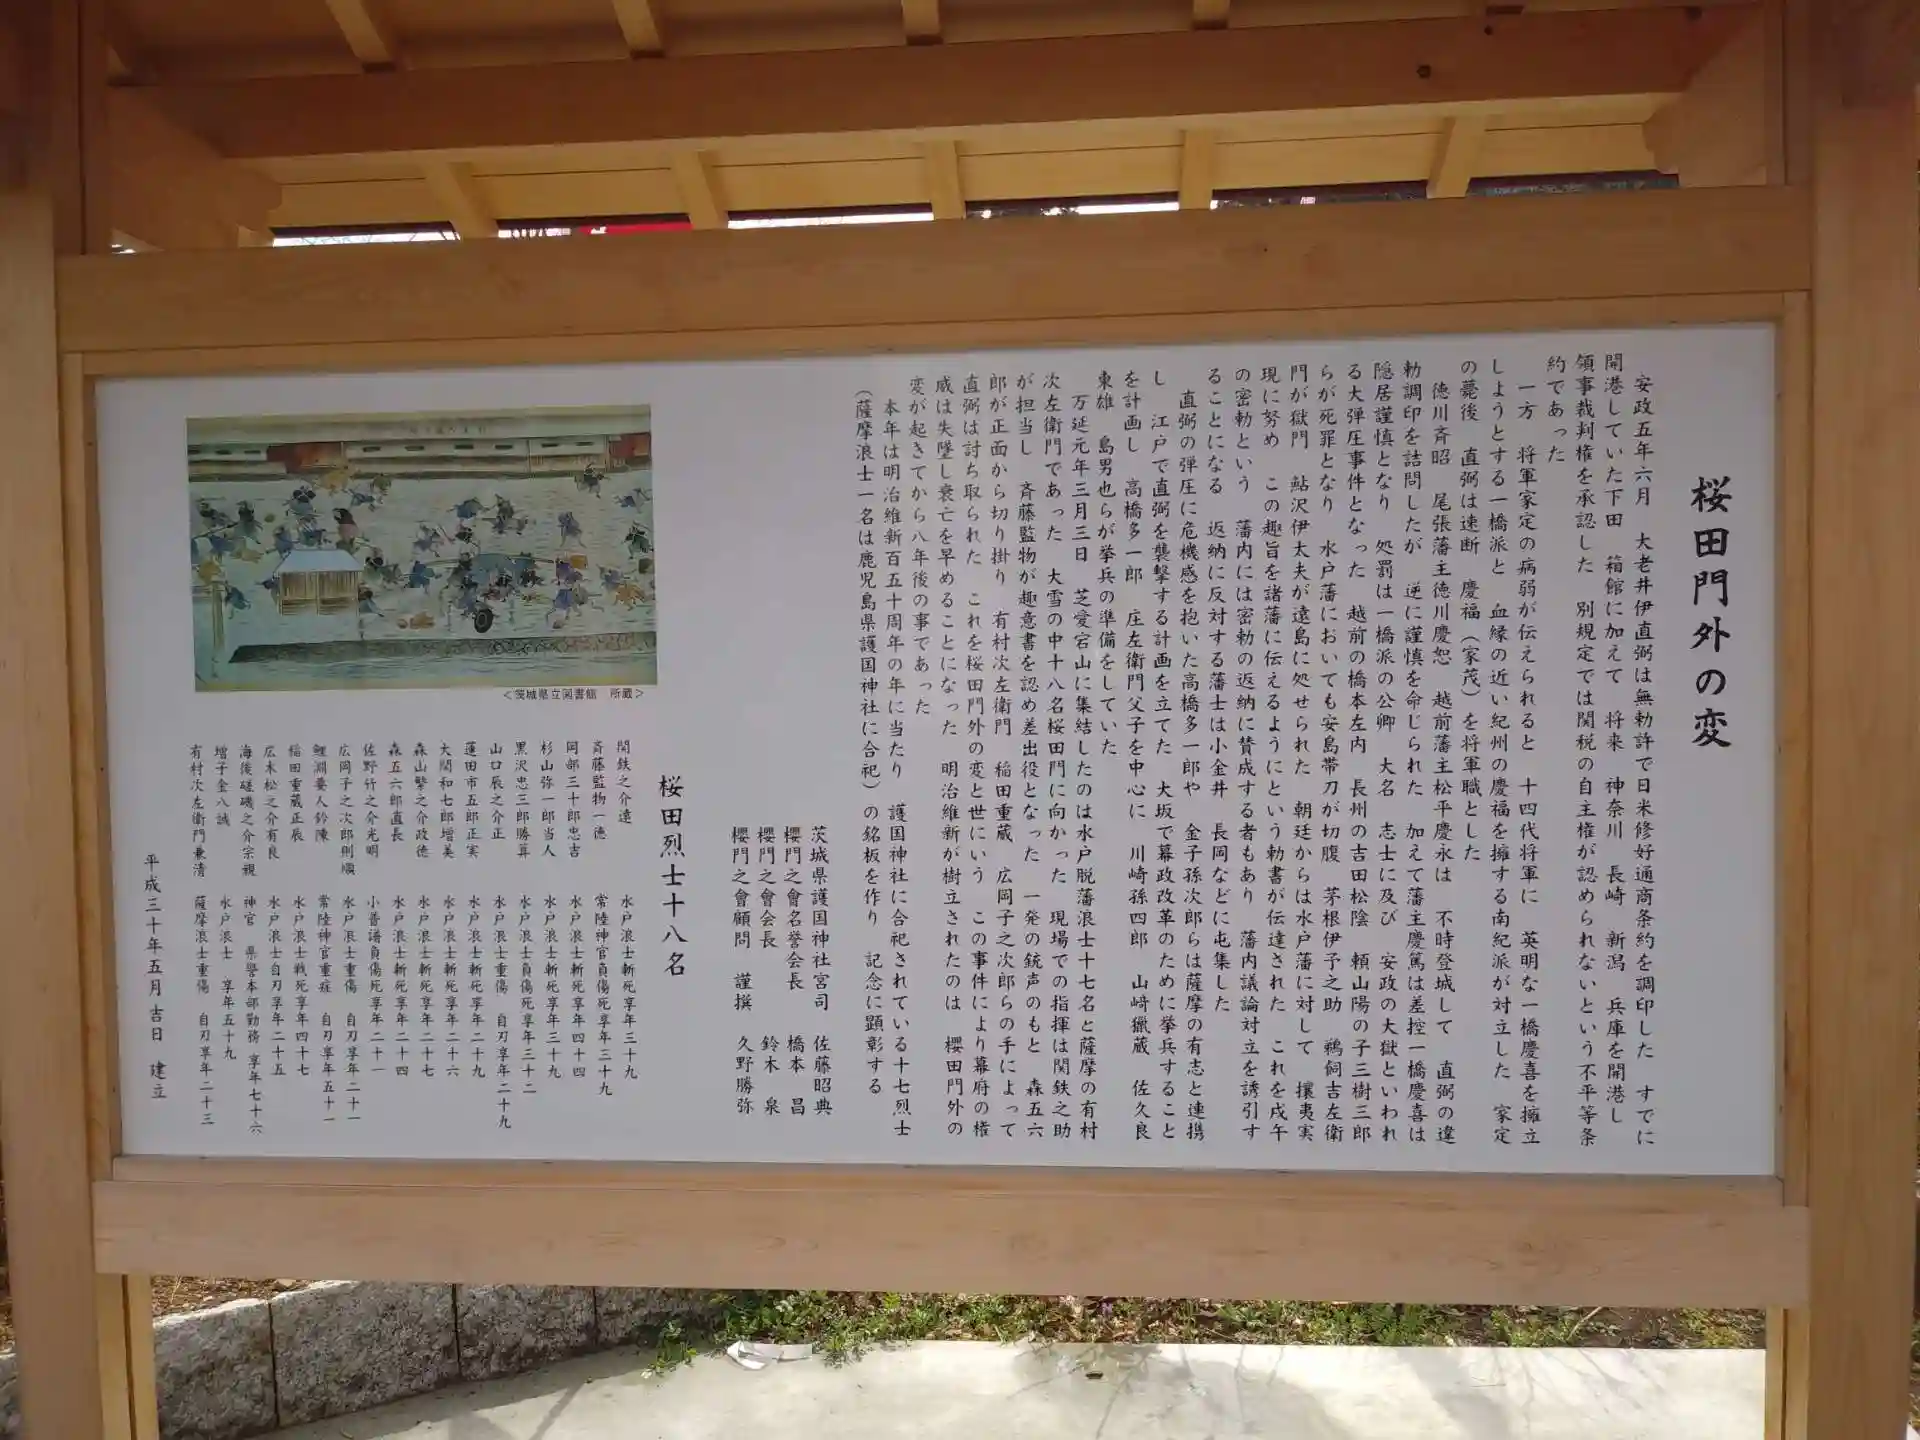 桜田門外の変
安政五年六月　大老井伊直弼は無勅許で日米修好通商条約を調印した　すでに
開港していた下田　箱館に加えて　将来　神奈川　長崎　新潟　兵庫を開港し
領事裁判権を承認した　別規定では関税の自主権が認められないという不平等条
約であった
一方　将軍家定の病弱が伝えられると　十四代将軍に　英明な一橋慶喜を擁立
しようとする一橋派と　血縁の近い紀州の慶福を擁する南紀派が対立した　家定
の薨後　直弼は速断　慶福（家茂）を将軍職とした
徳川斉昭　尾張藩主徳川慶恕　越前藩主松平慶永は　不時登城して　直弼の違
勅調印を詰問したが　逆に謹慎を命じられた　加えて藩主慶篤は差控一橋慶喜は
隠居謹慎となり　処罰は一橋派の公卿　大名　志士に及び　安政の大獄といわれ
る大弾圧事件となった　越前の橋本左内　長州の吉田松陰　頼山陽の子三樹三郎
らが死罪となり　水戸藩においても安島帯刀が切腹　茅根伊予之助　鵜飼吉左衛
門が獄門　鮎沢伊太夫が遠島に処せられた　朝廷からは水戸藩に対して　攘夷実
現に努め　この趣旨を諸藩に伝えるようにという勅書が伝達された　これを戊午
の密勅という　藩内には密勅の返納に賛成する者もあり　藩内議論対立を誘引す
ることになる　返納に反対する藩士は小金井　長岡などに屯集した
直弼の弾圧に危機感を抱いた高橋多一郎や　金子孫次郎らは薩摩の有志と連携
し　江戸で直弼を襲撃する計画を立てた　大坂で幕政改革のために挙兵すること
を計画し　高橋多一郎　庄左衛門父子を中心に　川崎孫四郎　山﨑獵蔵　佐久良
東雄　島男也らが挙兵の準備をしていた
万延元年三月三日　芝愛宕山に集結したのは水戸脱藩浪士十七名と薩摩の有村
次左衛門であった　大雪の中十八名桜田門に向かった　現場での指揮は関鉄之助
が担当し　斉藤監物が趣意書を認め差出役となった　一発の銃声のもと　森五六
郎が正面から切り掛り　有村次左衛門　稲田重蔵　広岡子之次郎らの手によって
直弼は討ち取られた　これを桜田門外の変と世にいう　この事件により幕府の権
威は失墜し衰亡を早めることになった　明治維新が樹立されたのは　櫻田門外の
変が起きてから八年後の事であった
本年は明治維新百五十周年の年に当たり　護国神社に合祀されている十七烈士
（薩摩浪士一名は鹿児島県護国神社に合祀）の銘板を作り　記念に顕彰する
茨城県護国神社宮司　佐藤昭典
櫻門之會名誉会長　橋本　昌
櫻門之會会長　鈴木　泉
櫻門之會顧問　謹撰　久野勝弥
＜茨城県立図書館　所蔵＞
桜田烈士十八名
関鉄之介遠　水戸浪士斬死享年三十九
斉藤監物一徳　常陸神官負傷死享年三十九
岡部三十郎忠吉　水戸浪士斬死享年四十四
杉山弥一郎当人　水戸浪士斬死享年三十九
黒沢忠三郎勝算　水戸浪士負傷死享年三十二
山口辰之介正　水戸浪士重傷　自刃享年二十九
蓮田市五郎正実　水戸浪士斬死享年二十九
大関和七郎増美　水戸浪士斬死享年二十六
森山繁之介政徳　水戸浪士斬死享年二十七
森五六郎直長　水戸浪士斬死享年二十四
佐野竹之介光明　小普請負傷死享年二十一
広岡子之次郎則順　水戸浪士重傷　自刃享年二十一
鯉淵要人鈐陳　常陸神官重症　自刃享年五十一
稲田重蔵正辰　水戸浪士戦死享年四十七
広木松之介有良　水戸浪士自刃享年二十五
海後磋磯之介宗親　神官　県警本部勤務　享年七十六
増子金八誠　水戸浪士　享年五十九
有村次左衛門兼清　薩摩浪士重傷　自刃享年二十三
平成三十年五月吉日　建立